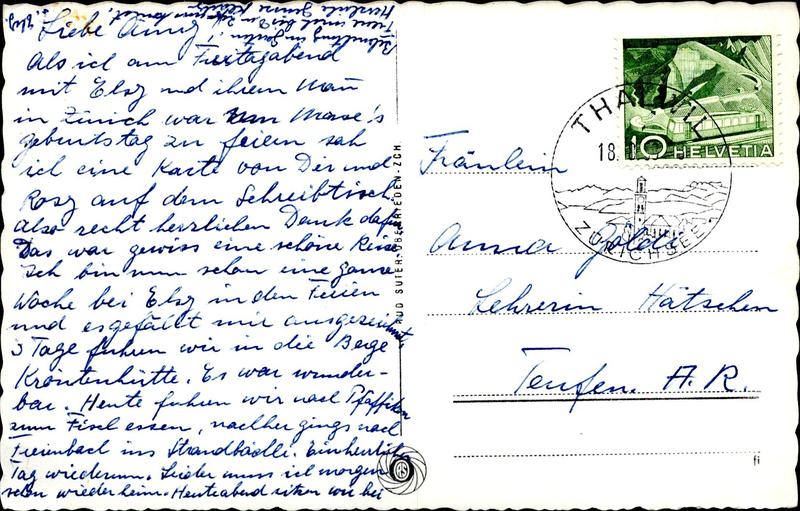 Liebe Anny!
Als ich am Freitagabend
mit Elsy und ihrem Mann
in Zürich war um
geburtstag zu feiern sah
ich eine Karte von Dir und
Rosy auf dem Schreibtisch
also recht herzlichen Dank dafür
Das war gewiss eine schöne Reise
Ich bin nun schon eine ganze
Woche bei Elsy in den Ferien
und es gefällt mir ausgezeichnet
3 Tage fuhren wir in die Berge
Kröntenhütte. Es war wunder-
bar. Heute fuhren wir nach Pfäffikon
zum Fisch essen, nachher gings nach
Freienbach ins Strandbädli. Ein herrlicher
Tag wiederum. Leider muss ich morgen
schon wieder heim. Heute abend sitzen wir bei
Herzliche Grüsse
Elsy.
RUD SUTER, OBERRIEDEN-ZCH
RS
THALWIL
18.
ZÜRICHSEE
10 HELVETIA
Fräulein
Anna
Lehrerin Hätschen
Teufen. A. R.
fi